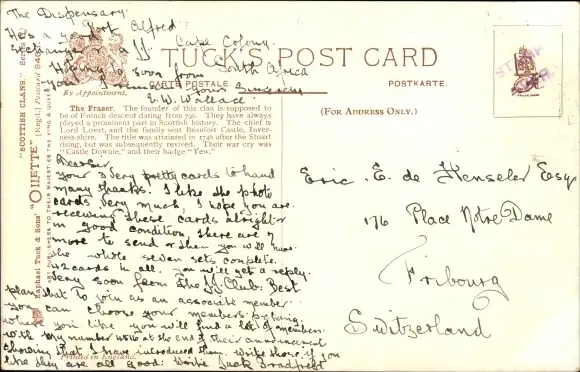 The Dispensary.
Port Alfred.
Cape Colony
South Africa
He's a good
exchanger
Hoping to
soon from
you I remain
Yours Sincerely
E. W. Wallace.
TUCK'S POST CARD
CARTE POSTALE.
POSTKARTE.
By Appointment.
(FOR ADDRESS ONLY.)
The Fraser. The founder of this clan is supposed to
be of French descent dating from 790. They have always
played a prominent part in Scottish history. The chief is
Lord Lovat, and the family seat Beaufort Castle, Inver-
ness-shire. The title was attainted in 1746 after the Stuart
rising, but was subsequently revived. Their war cry was
"Castle Downie," and their badge "Yew."
"SCOTTISH CLANS."
Raphael Tuck & Sons' "OILETTE" (Regd.) Postcard 94
PUBLISHERS TO THEIR MAJESTIES THE KING & QUEEN
Dear Sir,
Your 3 very pretty cards to hand
many thanks. I like the photo
cards very much, I hope you are
receiving these cards alright &
in good condition, there are 7
more to send & then you will have
the whole seven sets complete.
42 cards in all. you will get a reply
very soon from the JJ Club. Best
plan that to join as an associate member
you can choose your members & bring
when you like you will find a lot of members
with my number 4516 at the end of their announcement
showing that I have introduced them. Write those if you
like they are all good. Write Jack Bradfield
Printed in England.
Eric. E. de Henseler Esq
176 Place Notre Dame
Fribourg
Switzerland